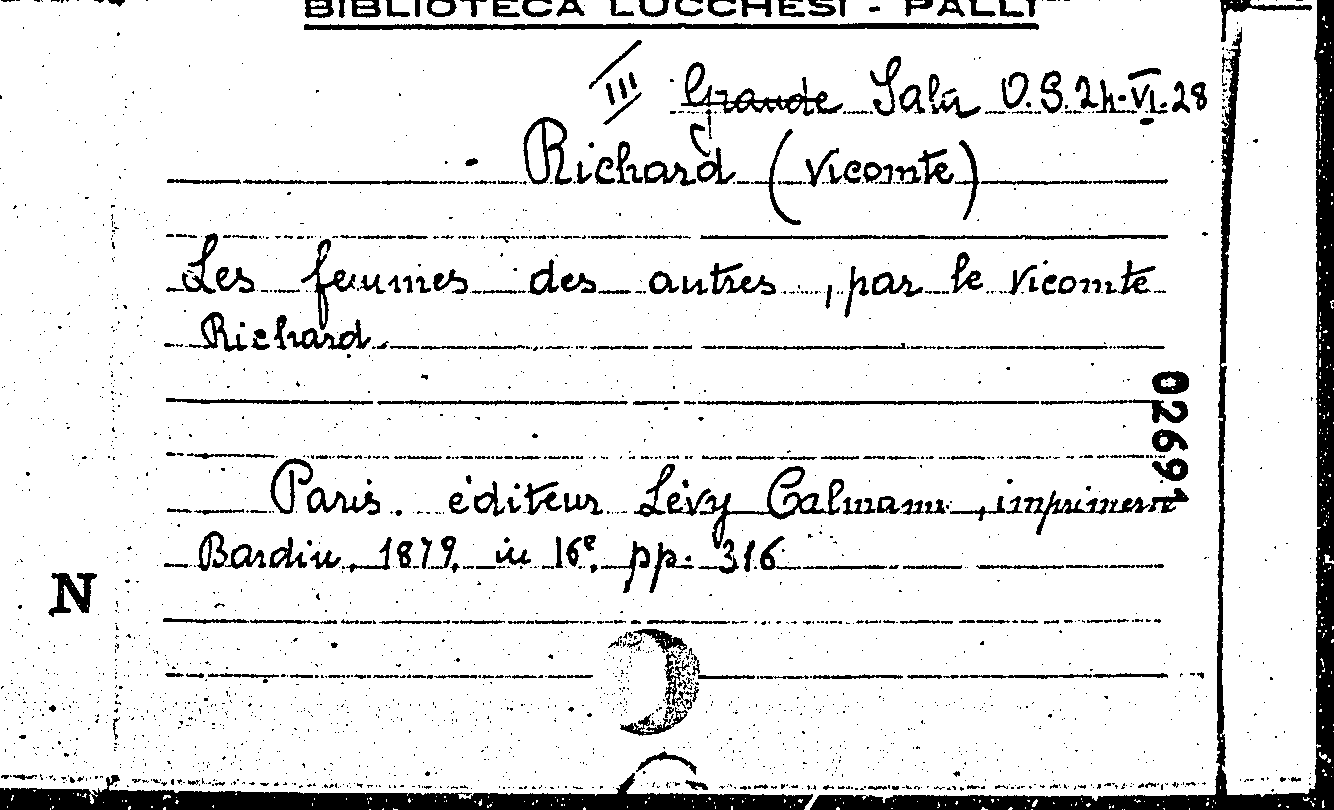 BIBLIOTECA LUCCHESI - PALLI
III Grande Sala O.S.24.VI.28
Richard (Vicomte)
Les femmes des autres, par le vicomte
Richard.
02691
Paris. éditeur Lévy Calmann, imprimerie
Bardin, 1879, in 16º, pp. 316
N